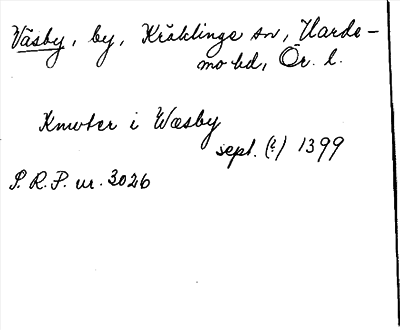 Väsby, by, Kräklinge sn, Harde-
mo hd, Ör. l.
Knwter i Wæsby
sept. (?) 1399
S. R. P. nr. 3026